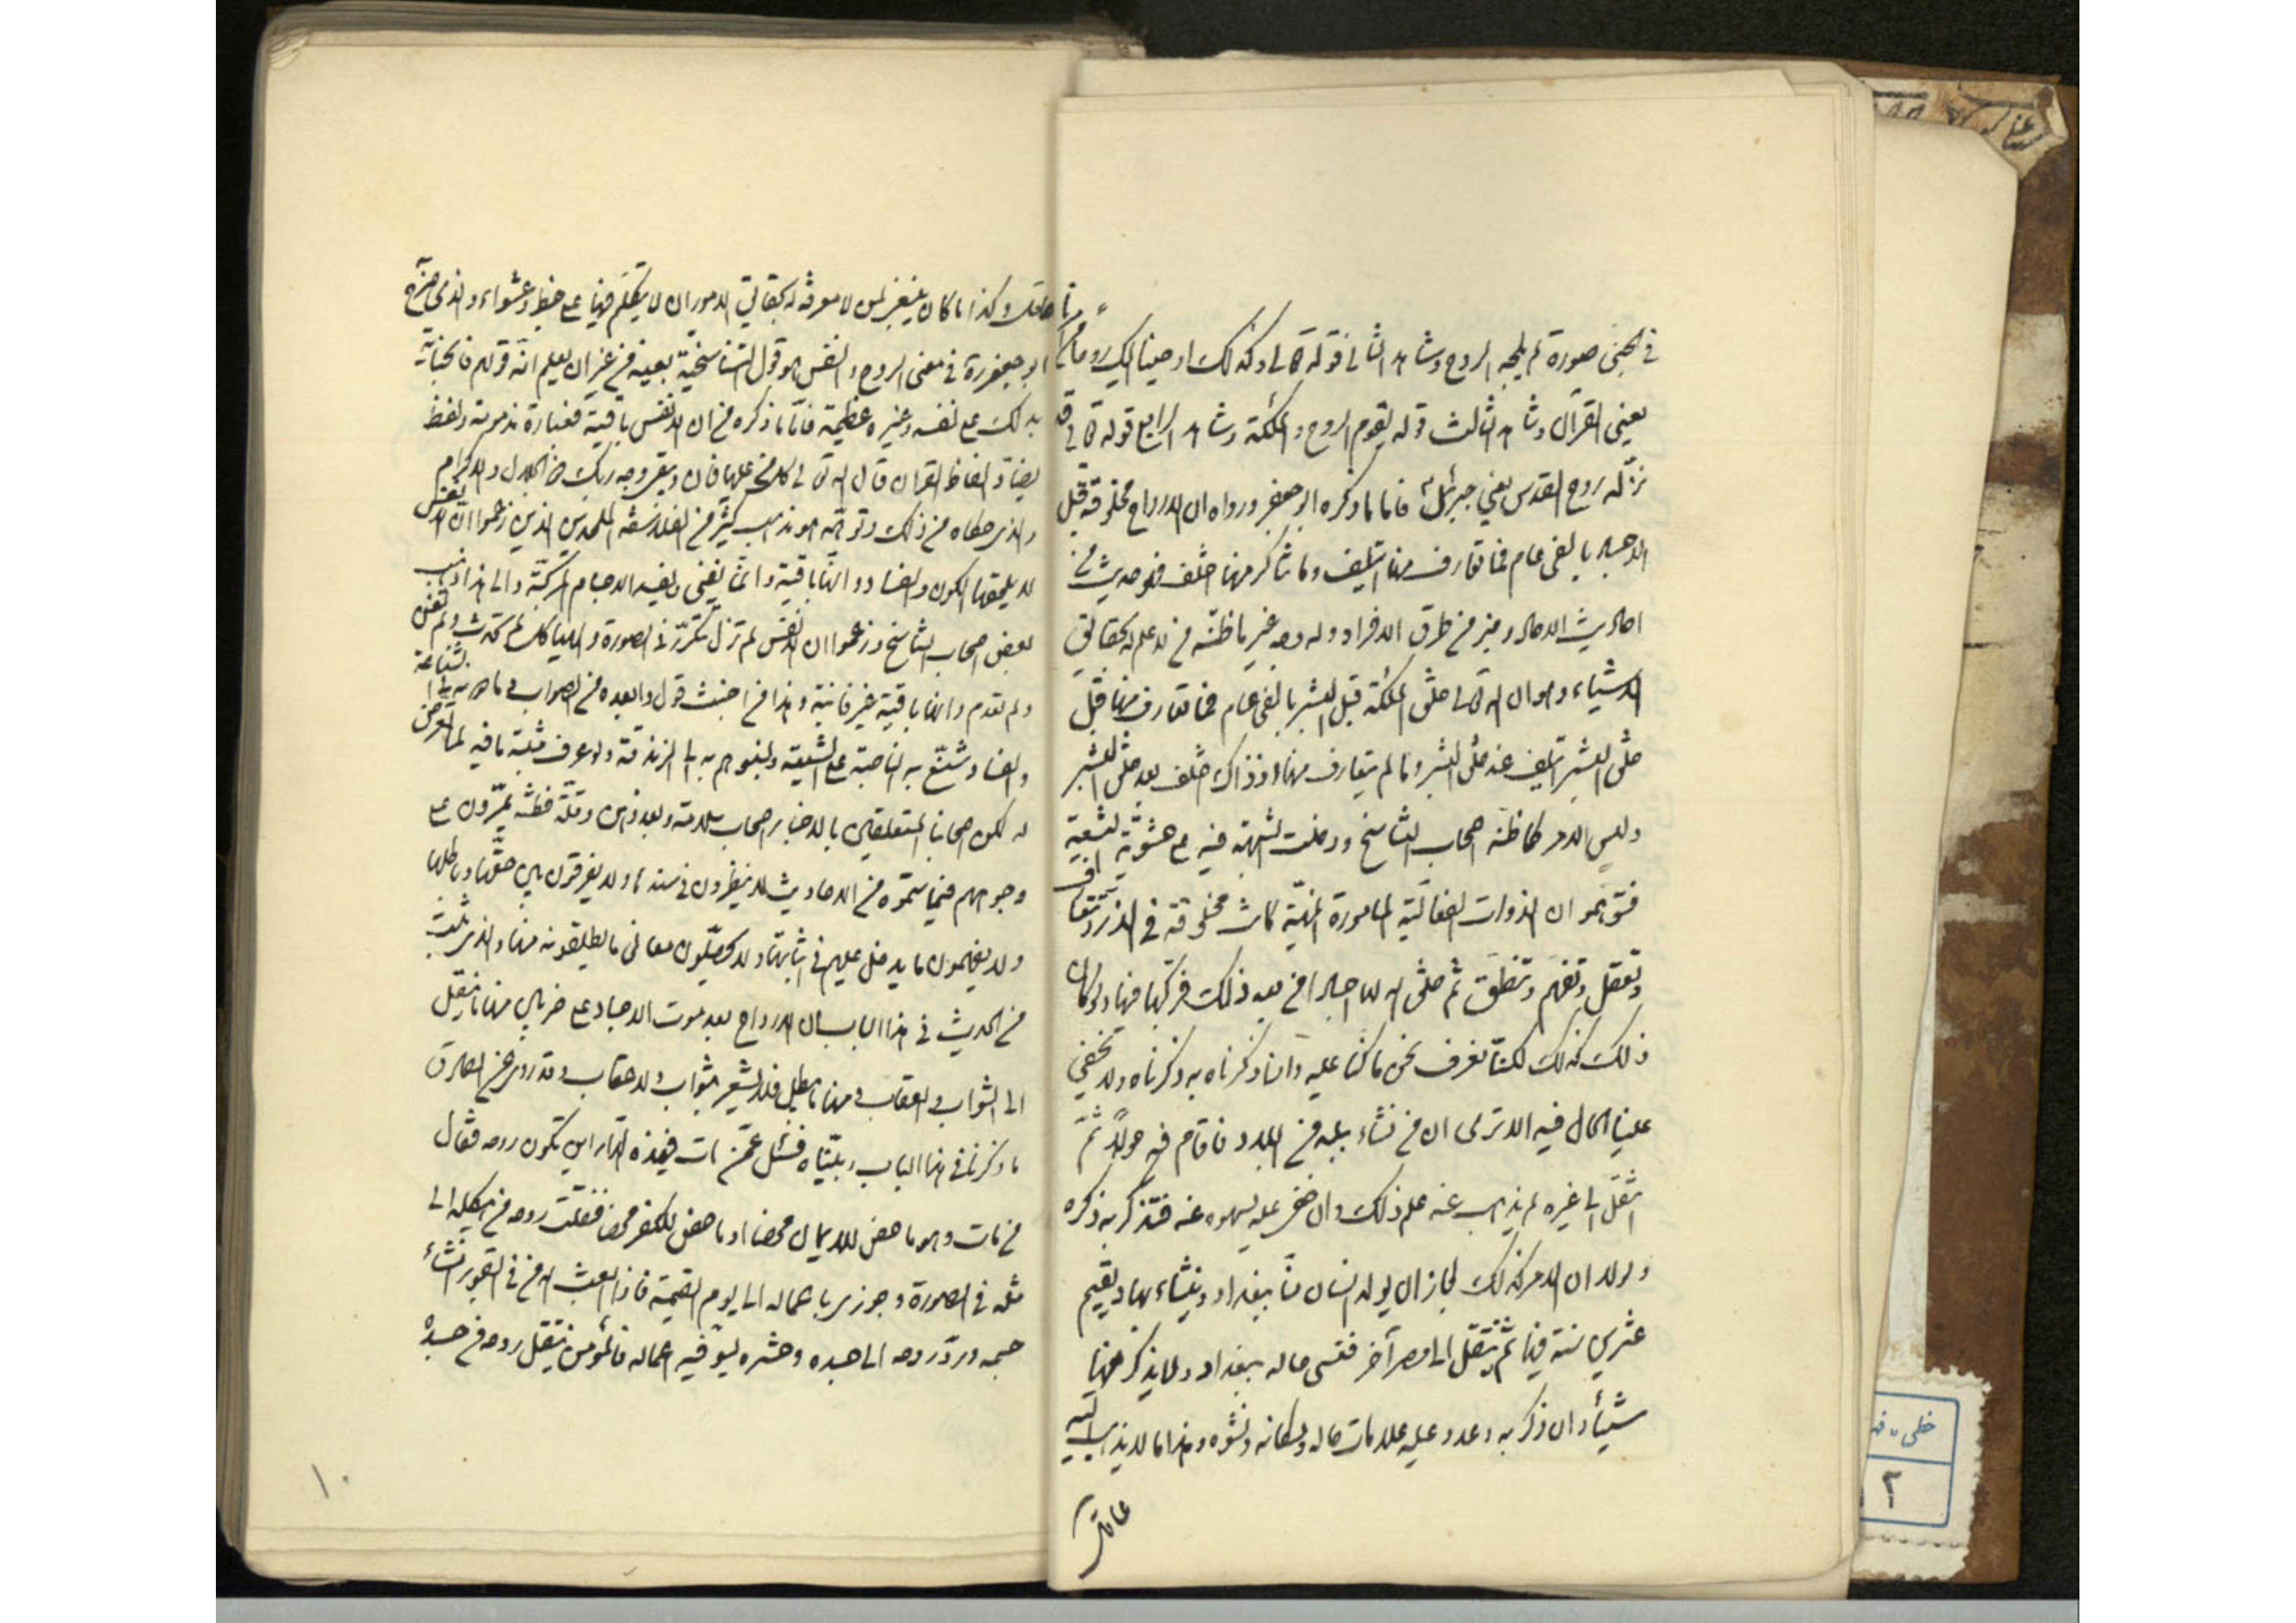 في الجنين صورة لم يلجه الروح وشاهد الثاني قوله تعالى وكذلك اوحينا اليك روحا من امرنا
يعني القرآن وشاهد الثالث قوله يوم يقوم الروح والملئكة وشاهد الرابع قوله تعالى قل
نزله روح القدس يعني جبرئيل ع فاما ما ذكره ابو جعفر ورواه ان الارواح مخلوقة قبل
الاجساد بالفي عام فما تعارف منها ائتلف وما تناكر منها اختلف فهو حديث من
احاديث الاحاد وخبر من طرق الافراد وله وجه غير ما ظنه من لا علم له بحقائق
الاشياء وهو ان الله تعالى خلق الملئكة قبل البشر بالفي عام فما تعارف منها قبل
خلق البشر ائتلف عند خلق البشر وما لم يتعارف منها اذ ذاك اختلف بعد خلق البشر
وليس الامر كما ظنه اصحاب التناسخ ودخلت الشبهة فيه على حشوية الشيعة
فتوهموا ان الذوات الفعالة المأمورة المنهية كانت مخلوقة في الذر وتتعارف
وتعقل وتفهم وتنطق ثم خلق الله لها اجسادا من بعد ذلك فركبها فيها ولو كان
ذلك كذلك لكنا نعرف نحن ما كنا عليه واذا ذكرناه به ذكرناه ولا يخفى
علينا الحال فيه الا ترى ان من نشاء ببلد من البلاد فاقام فيه حولا ثم
انتقل الى غيره لم يذهب عنه علم ذلك وان خفي عليه لسهوه عنه فتذكر به ذكره
ولولا ان الامر كذلك لجاز ان يولد انسان منا ببغداد وينشاء بها ويقيم
عشرين سنة فيها ثم ينتقل الى مصر آخر فنسي حاله ببغداد ولا يذكر منها
شيئا وان ذكر به وعدد عليه علامات حاله ومكانه ونشوه وهذا ما لا يذهب اليه
عاقل
عاقل وكذا ما كان ينبغي لمن لا معرفة له بحقائق الامور ان لا يتكلم فيها على خبط وعشواء والذي صرح
ابو جعفر ره في معنى الروح والنفس هو قول التناسخية بعينه من غير ان يعلم انه قولهم فالجناية
بذلك على نفسه وغيره عظيمة فاما ما ذكره من ان الانفس باقية فعبارة مذمومة ولفظ
يضاد الفاظ القران قال الله تعالى كل من عليها فان ويبقى وجه ربك ذو الجلال والاكرام
والذي حكاه من ذلك وتوهمه هو مذهب كثير من الفلاسفة الملحدين الذين زعموا ان الانفس
لا يلحقها الكون والفساد وانها باقية وانما يفنى ويفسد الاجسام المركبة والى هذا ذهب
بعض اصحاب التناسخ وزعموا ان الانفس لم تزل تتكرر في الصورة والهياكل لم تحدث ولم تفن
ولم تعدم وانها باقية غير فانية وهذا من اخبث قول وابعده من الصواب وما دونه في الشناعة
والفساد شنع به الناصبة على الشيعة ونسبوهم به الى الزندقة ولو عرف مثبته ما فيه لما تعرض
له لكن اصحابنا المتعلقين بالاخبار اصحاب سلامة وبعد ذهن وقلة فطنة يمرون على
وجوههم فيما سمعوه من الاحاديث ولا ينظرون في سندها ولا يفرقون بين حقها وباطلها
ولا يفهمون ما يدخل عليهم في اثباتها ولا يحصلون معاني ما يطلقونه منها والذي ثبت
من الحديث في هذا الباب ان الارواح بعد موت الاجساد على ضربين منها ما ينتقل
الى الثواب والعقاب ومنها ما يبطل فلا يشعر بثواب ولا عقاب وقد روي عن الصادق
ما ذكرناه في هذا الباب وبيناه فسئل عمن مات في هذه الدار اين تكون روحه فقال
من مات وهو ماحض للايمان محضا او ماحض للكفر محضا نقلت روحه من هيكله الى
مثله في الصورة وجوزي باعماله الى يوم القيمة فاذا بعث الله من في القبور انشاء
جسمه ورد روحه الى جسده وحشره ليوفيه اعماله فالمؤمن ينتقل روحه من جسده
١٠
خطی
٢